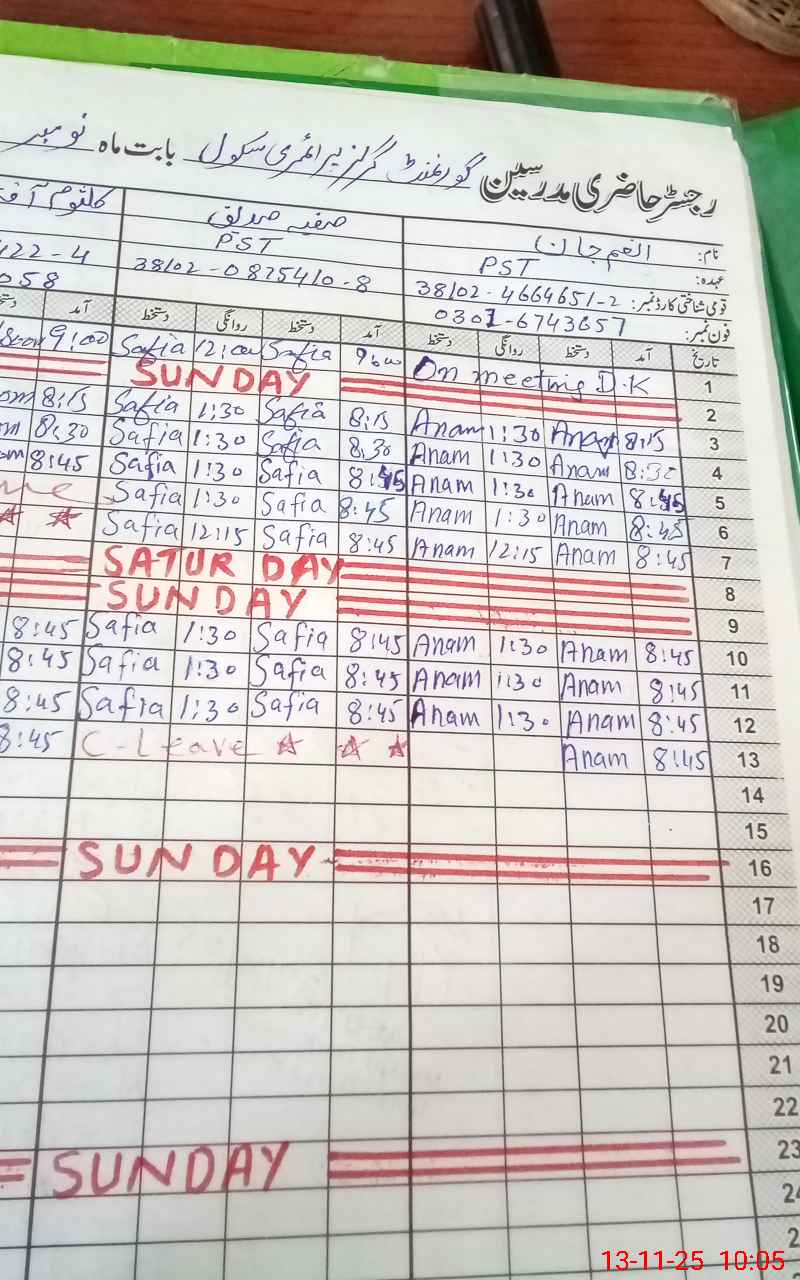 رجسٹر حاضری مدرسین گورنمنٹ گرلز پرائمری سکول بابت ماہ نومبر
نام: انعم جان صفیہ صدیق کلثوم
عہدہ: PST PST
قومی شناختی کارڈ نمبر: 38102-4664651-2 38102-0825410-8 122-4
فون نمبر: 0301-6743657 058
تاریخ آمد دستخط روانگی دستخط آمد دستخط روانگی دستخط آمد
9:00 Safia 12:00 Safia 9:00 On meeting D.K 1
SUNDAY 2
8:15 Safia 1:30 Safia 8:15 Anam 1:30 Anam 8:15 3
8:30 Safia 1:30 Safia 8:30 Anam 1:30 Anam 8:30 4
8:45 Safia 1:30 Safia 8:45 Anam 1:30 Anam 8:45 5
Safia 1:30 Safia 8:45 Anam 1:30 Anam 8:45 6
Safia 12:15 Safia 8:45 Anam 12:15 Anam 8:45 7
SATUR DAY 8
SUNDAY 9
8:45 Safia 1:30 Safia 8:45 Anam 1:30 Anam 8:45 10
8:45 Safia 1:30 Safia 8:45 Anam 1:30 Anam 8:45 11
8:45 Safia 1:30 Safia 8:45 Anam 1:30 Anam 8:45 12
8:45 C-Leave Anam 8:45 13
14
15
SUNDAY 16
17
18
19
20
21
22
SUNDAY 23
24
13-11-25 10:05